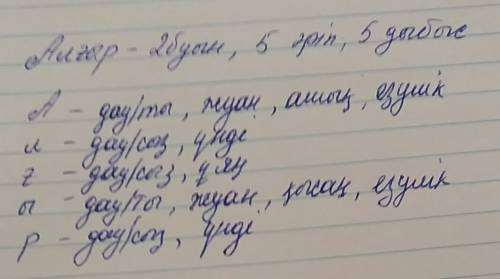 Алғыр - 2 буын, 5 әріп, 5 дыбыс
А - дау/ты, жуан, ашық, езулік
л - дау/сыз, үнді
ғ - дау/сыз, ұяң
ы - дау/ты, жуан, қысаң, езулік
р - дау/сыз, үнді